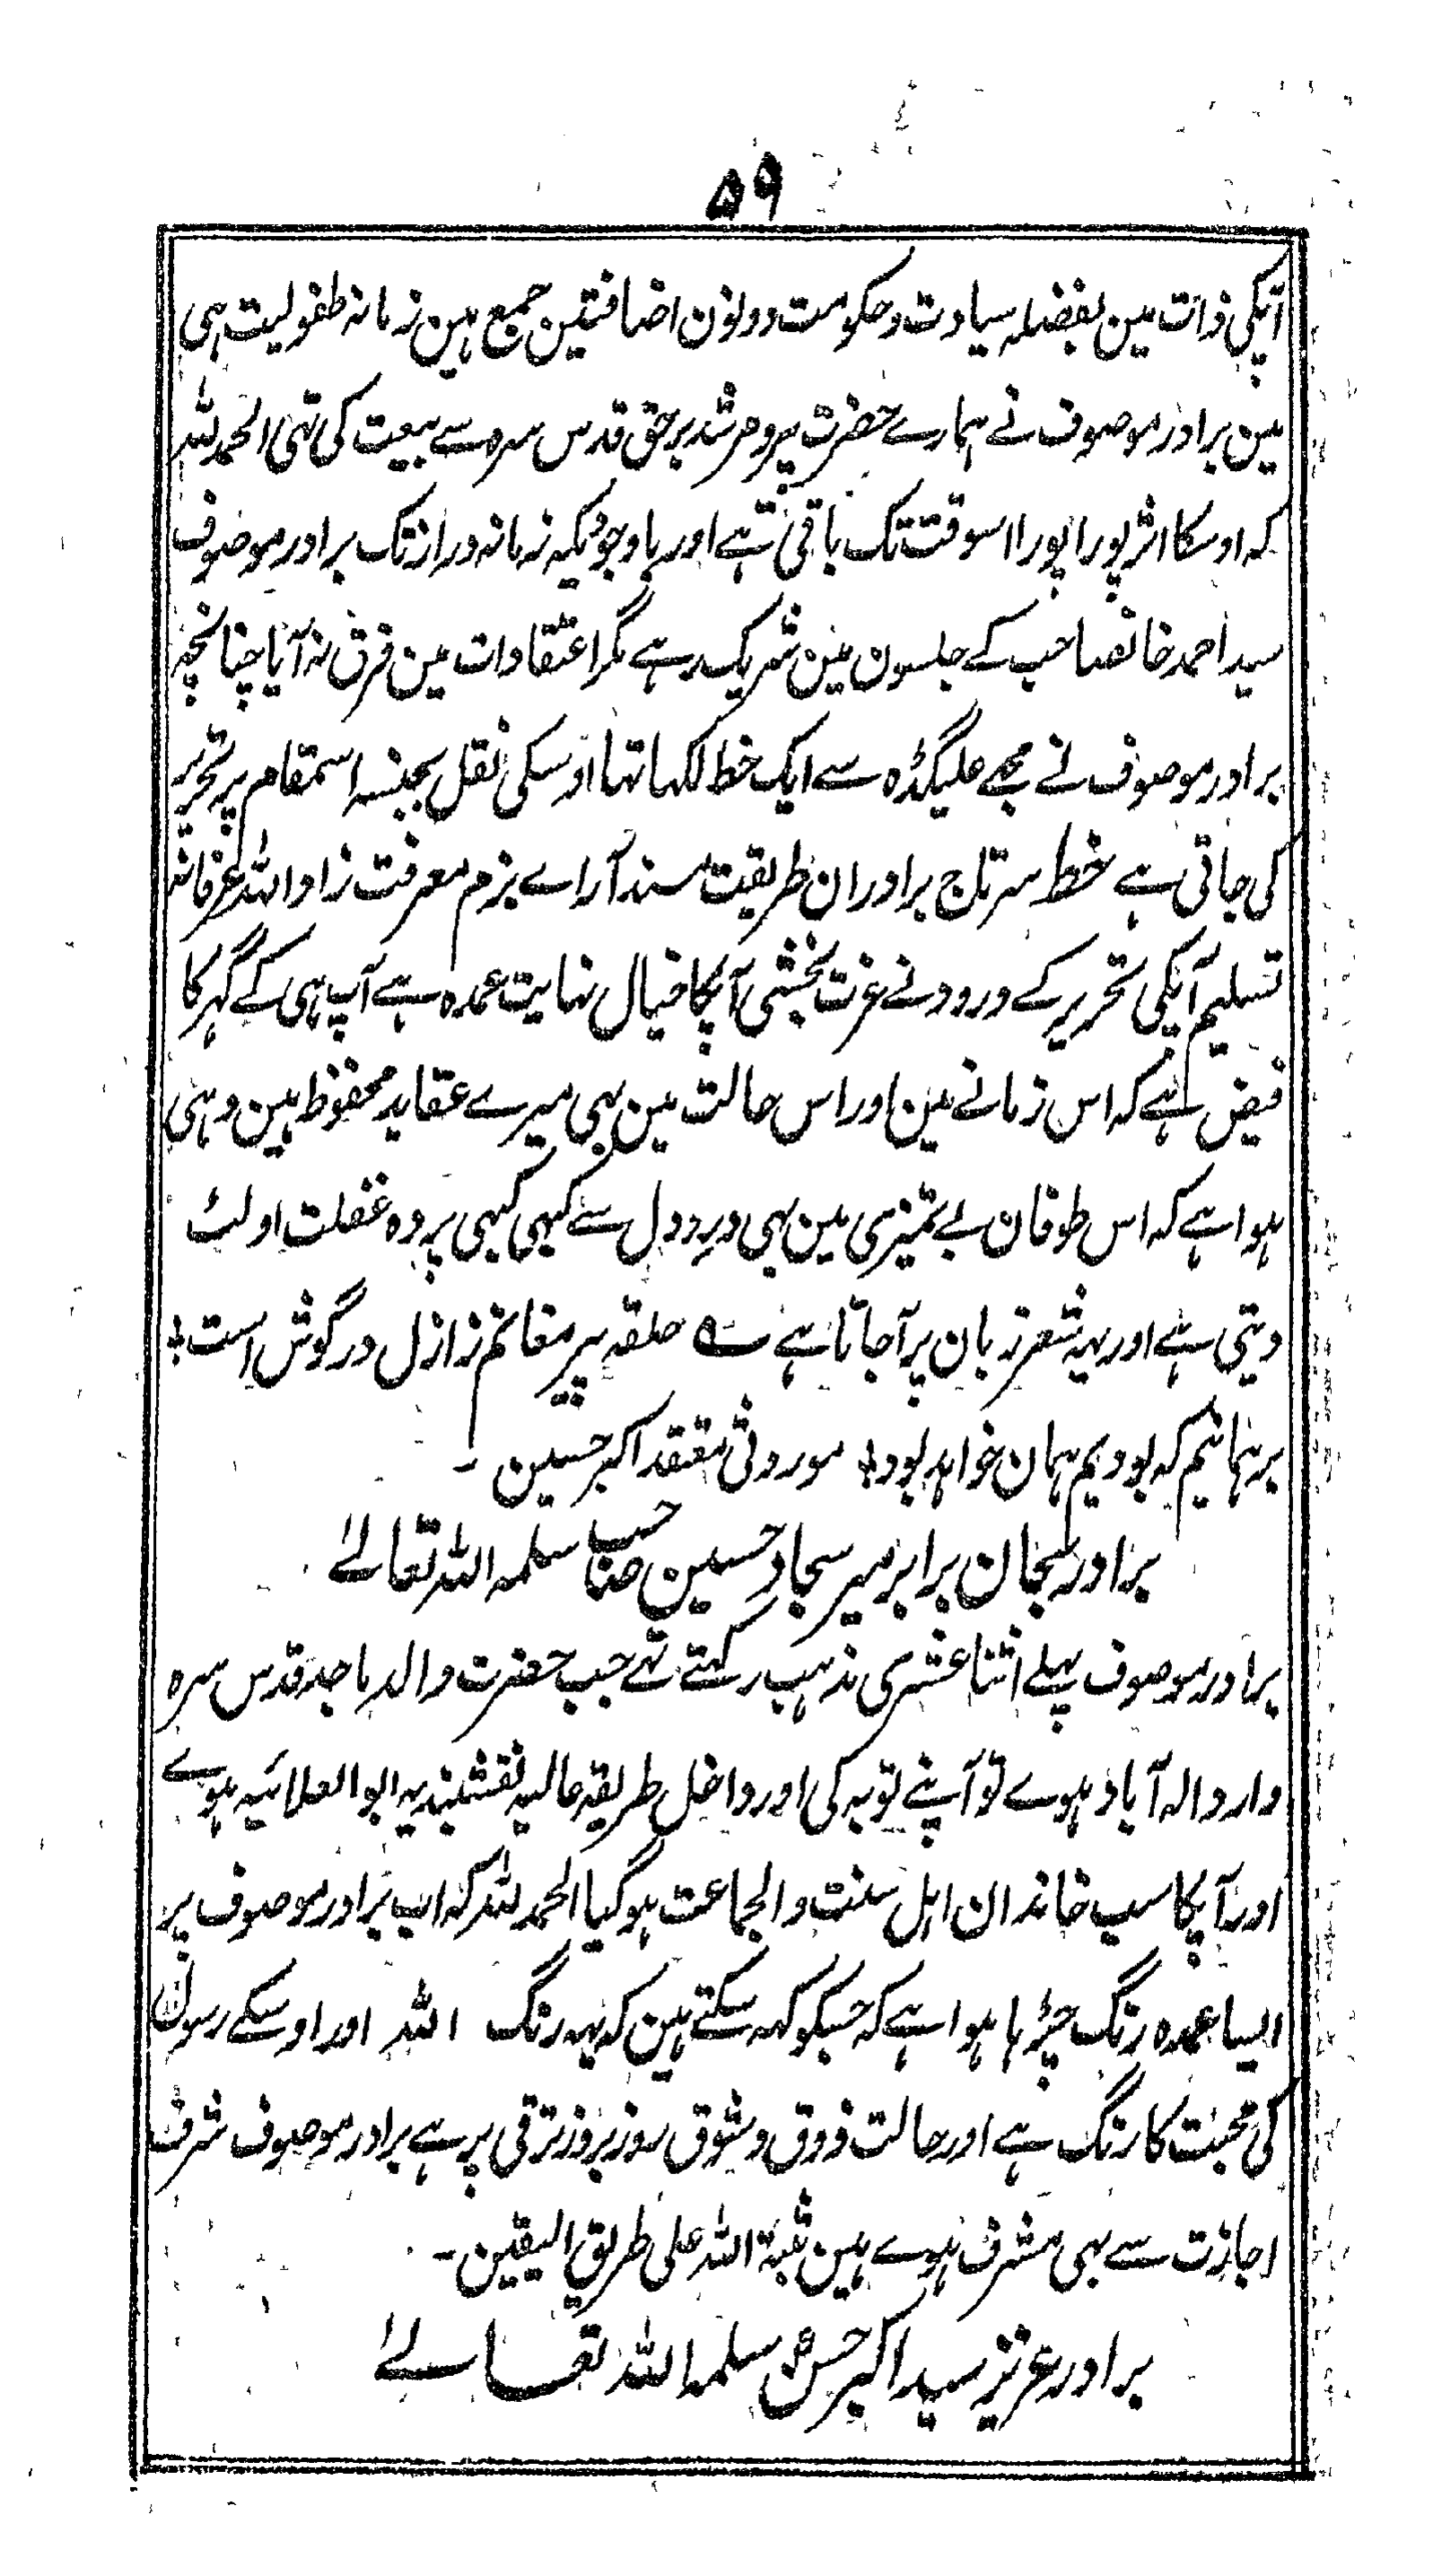 ۵۹
آپکی ذات مین بفضلہ سیادت و حکومت دونون اضافتین جمع ہین زمانہ طفولیت ہی
مین برادر موصوف نے ہمارے حضرت پیر و مرشد برحق قدس سرہ سے بیعت کی تہی الحمد للہ
کہ اوسکا اثر پورا پورا اسوقت تک باقی ہے اور باوجودیکہ زمانہ دراز تک برادر موصوف
سید احمد خانصاحب کے جلسون مین شریک رہے مگر اعتقادات مین فرق نہ آیا چنانچہ
برادر موصوف نے مجھے علیگڈہ سے ایک خط لکہا تہا اوسکی نقل بجنسہ اسمقام پر تحریر
کی جاتی ہے خط سرتاج برادران طریقت مسند آراے بزم معرفت زاد اللہ عرفانہ
تسلیم آپکی تحریر کے ورود نے عزت بخشی آپکا خیال نہایت عمدہ ہے آپ ہی کے گہر کا
فیض ہے کہ اس زمانے مین اور اس حالت مین بہی میرے عقاید محفوظ ہین وہی
ہوا ہے کہ اس طوفان بے تمیزی مین بہی درِ دل سے کبہی کبہی پردہ غفلت اولٹ
دیتی ہے اور یہہ شعر زبان پر آجاتا ہے ؎ حلقہ پیر مغانم ز ازل در گوش است ؛
بر ہمانیم کہ بودیم ہمان خواہد بود ؛ موروثی معتقد اکبر حسین ۔
برادر بجان برابر میر سجاد حسین صاحب سلمہ اللہ تعالےٰ
برادر موصوف پہلے اثنا عشری مذہب رکہتے تہے جب حضرت والد ماجد قدس سرہ
وارد الہ آباد ہوے تو آپنے توبہ کی اور داخل طریقہ عالیہ نقشبندیہ ابو العلائیہ ہوے
اور آپکا سب خاندان اہل سنت والجماعت ہو گیا الحمد للہ کہ اب برادر موصوف پر
ایسا عمدہ رنگ چڑہا ہوا ہے کہ جسکو کہہ سکتے ہین کہ یہہ رنگ اللہ اور اوسکے رسول
کی محبت کا رنگ ہے اور حالت ذوق و شوق روز بروز ترقی پر ہے برادر موصوف شرف
اجازت سے بہی مشرف ہوے ہین ثبتہ اللہ علی طریق الیقین ۔
برادر عزیز سید اکبر حسن سلمہ اللہ تعالےٰ